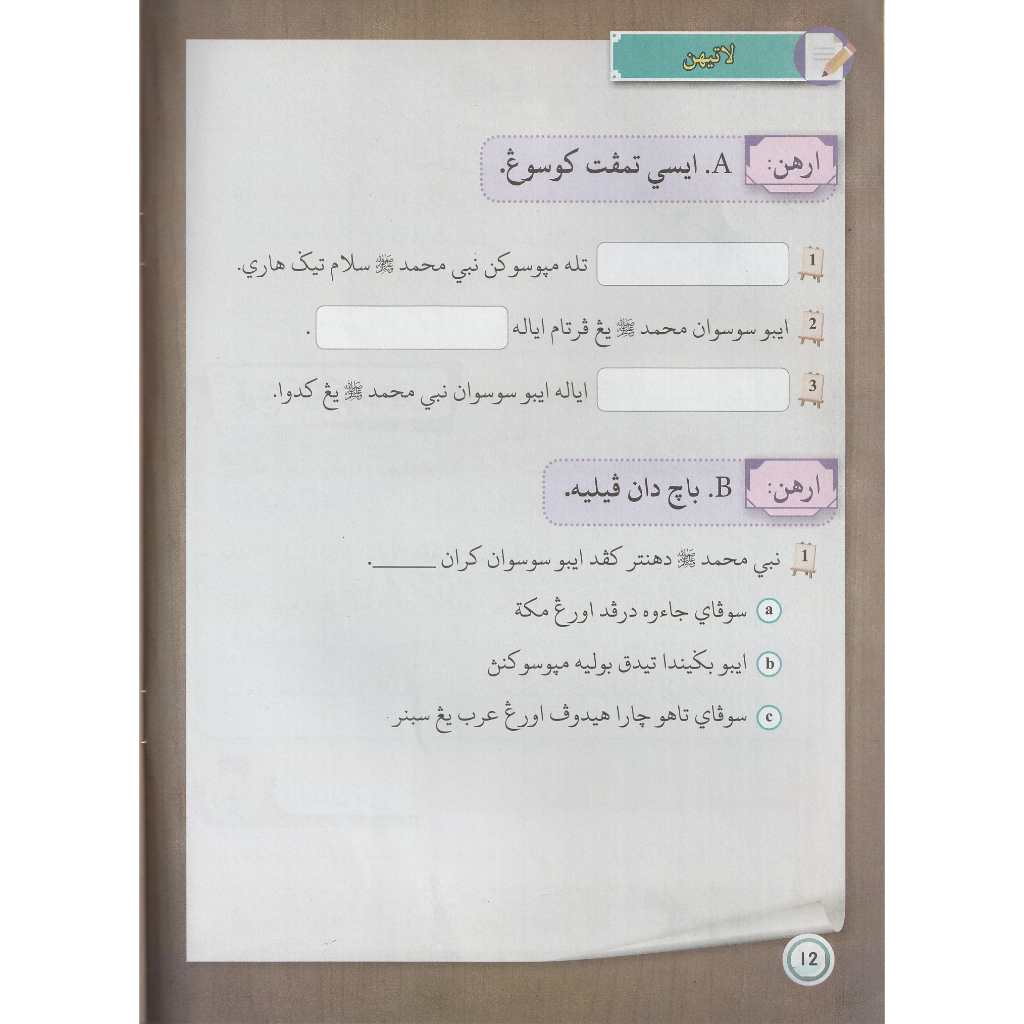 لاتيهن
ارهن: A. ايسي تمڤت كوسوڠ.
1 تله مڽوسوكن نبي محمد ﷺ سلام تيݢ هاري.
2 ايبو سوسوان محمد ﷺ يڠ ڤرتام اياله .
3 اياله ايبو سوسوان نبي محمد ﷺ يڠ كدوا.
ارهن: B. باچ دان ڤيليه.
1 نبي محمد ﷺ دهنتر كڤد ايبو سوسوان كران ______.
a سوڤاي جاءوه درڤد اورڠ مكة
b ايبو بݢيندا تيدق بوليه مڽوسوكنڽ
c سوڤاي تاهو چارا هيدوڤ اورڠ عرب يڠ سبنر
12